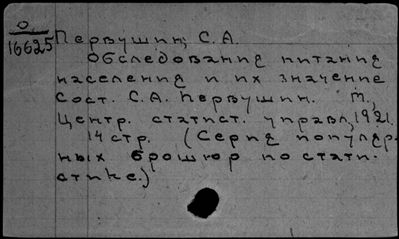 О
16625
Первушин, С.А.
Обследования питания
населения и их значение
Сост. С.А. Первушин. М.,
Центр. статист. управл, 1921.
14 стр. (Серия популяр-
ных брошюр по стати-
стике.)